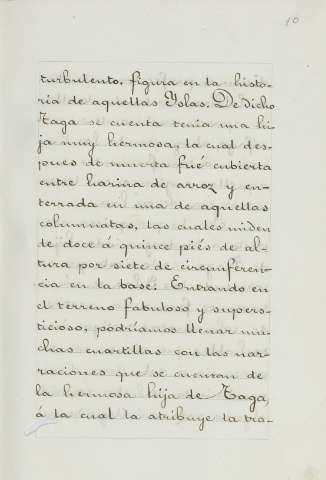 10
turbulento, figura en la histo-
ria de aquellas Yslas. De dicho
Taga se cuenta tenia una hi-
ja muy hermosa, la cual des-
pues de muerta fué cubierta
entre harina de arroz y en-
terrada en una de aquellas
columnatas, las cuales miden
de doce á quince piés de al-
tura por siete de circunferen-
cia en la base. Entrando en
el terreno fabuloso y supers-
ticioso, podríamos llenar mu-
chas cuartillas con las nar-
raciones que se cuentan de
la hermosa hija de Taga,
á la cual la atribuye la tra-